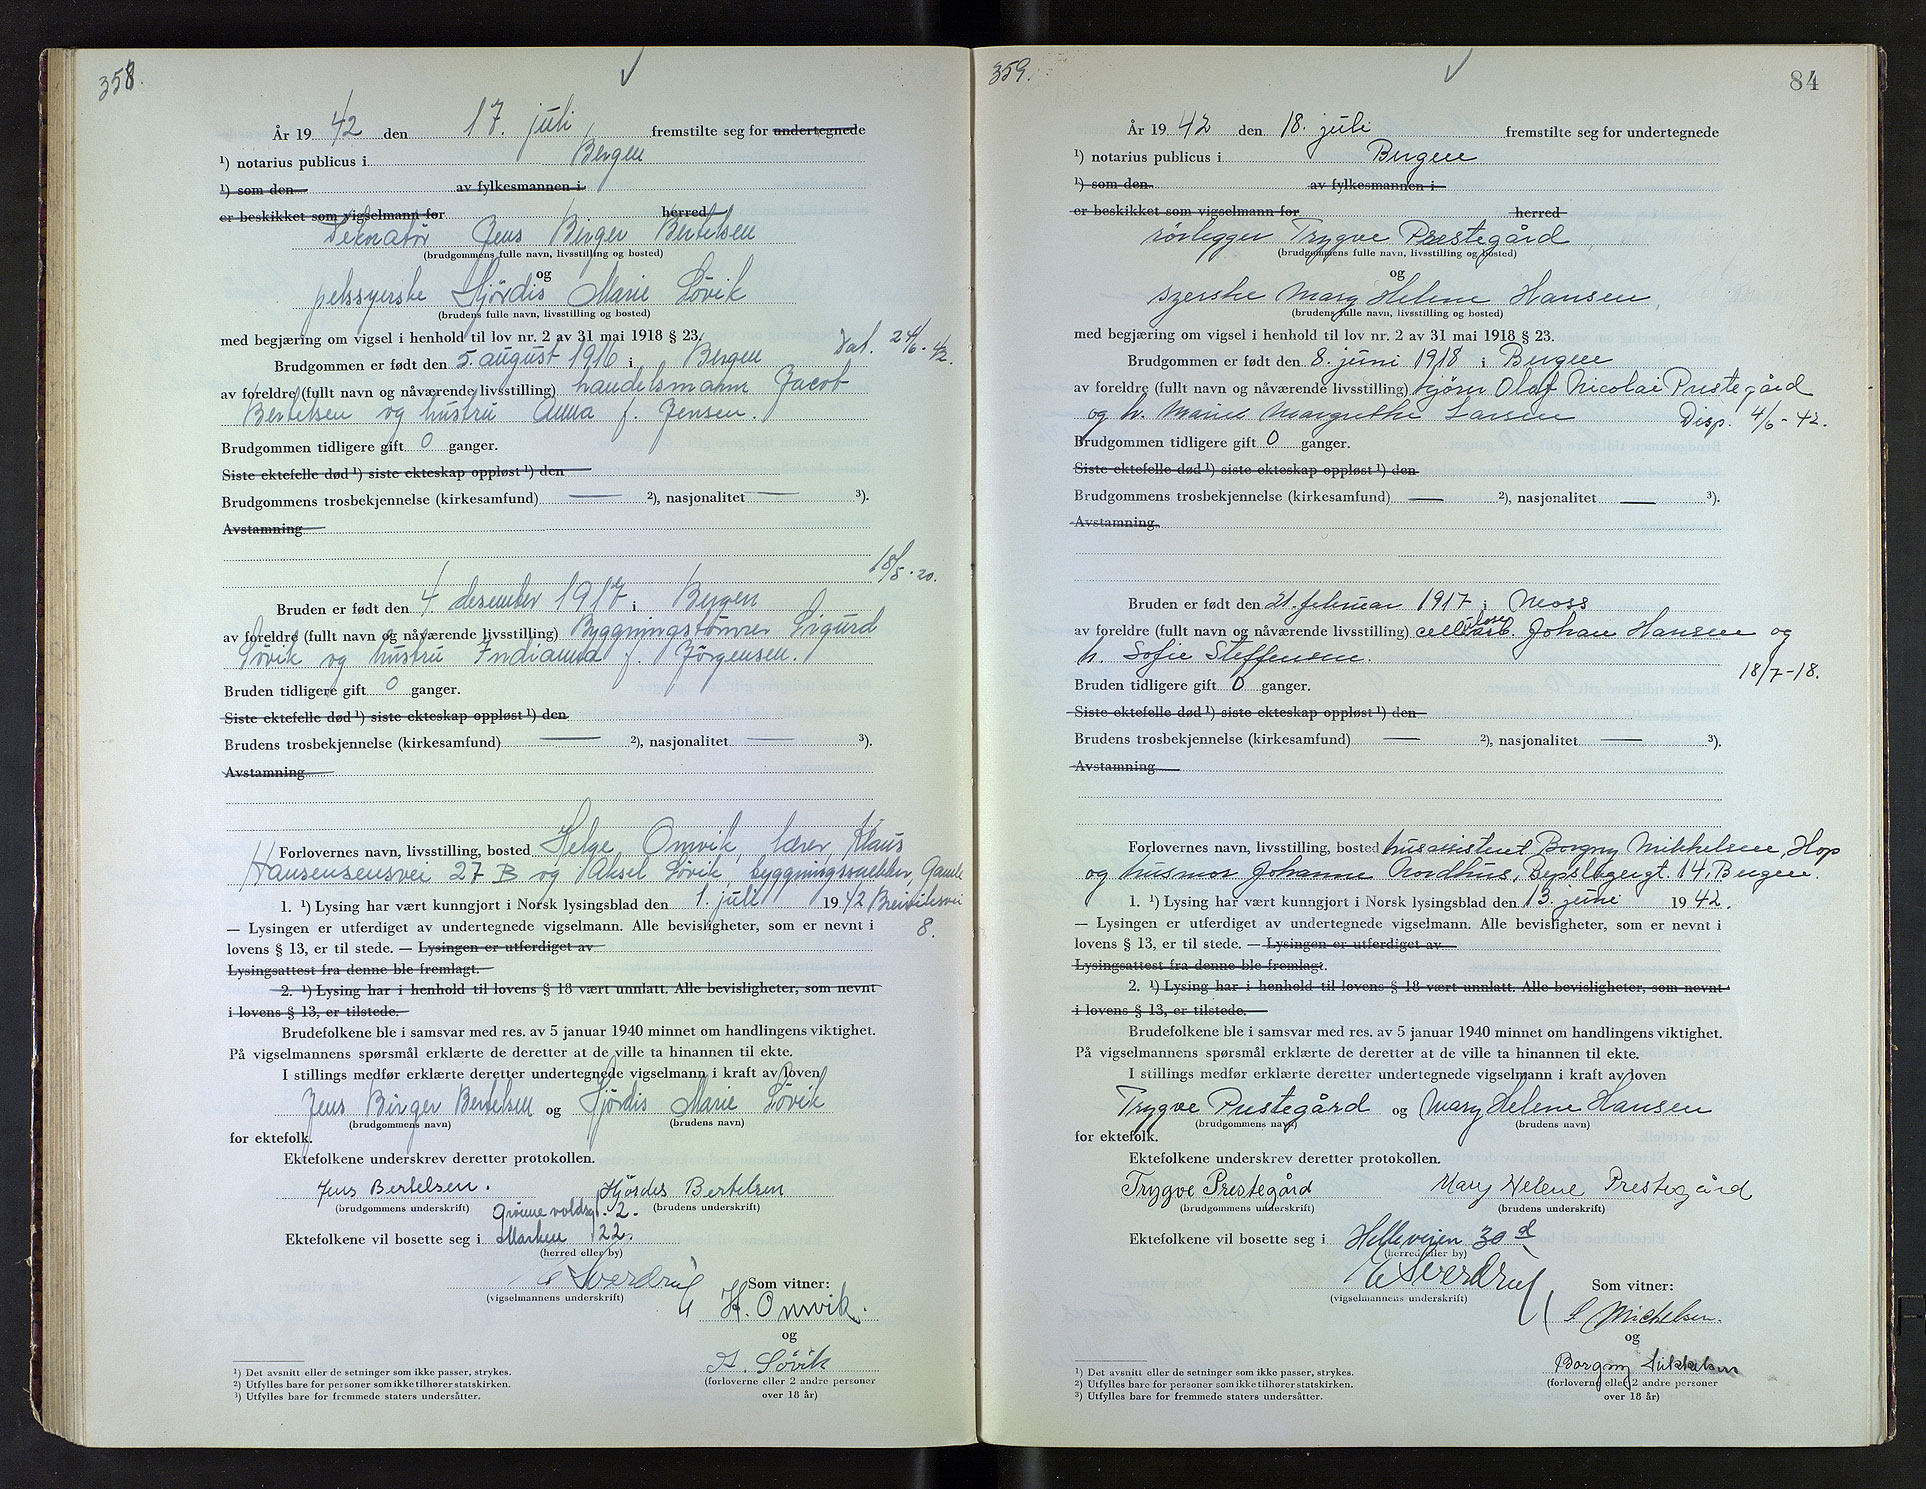 358.
År 19 42 den 17. juli fremstilte seg for undertegnede
¹) notarius publicus i Bergen
¹) som den av fylkesmannen i
er beskikket som vigselmann for herred
Dekoratør Jens Birger Bertelsen
(brudgommens fulle navn, livsstilling og bosted)
og
pelssyerske Hjördis Marie Sövik
(brudens fulle navn, livsstilling og bosted)
med begjæring om vigsel i henhold til lov nr. 2 av 31 mai 1918 § 23.
Brudgommen er født den 5. august 1916 i Bergen
av foreldre (fullt navn og nåværende livsstilling) handelsmann Jacob
Bertelsen og hustru Anna f. Jensen.
Brudgommen tidligere gift 0 ganger.
Siste ektefelle død ¹) siste ekteskap oppløst ¹) den
Brudgommens trosbekjennelse (kirkesamfund) — ²), nasjonalitet — ³).
Avstamning
18/5. 20.
Bruden er født den 4 desember 1917 i Bergen
av foreldre (fullt navn og nåværende livsstilling) Byggningstömrer Sigurd
Sövik og hustru Indianna f. Jörgensen.
Bruden tidligere gift 0 ganger.
Siste ektefelle død ¹) siste ekteskap oppløst ¹) den
Brudens trosbekjennelse (kirkesamfund) — ²), nasjonalitet — ³).
Avstamning
Forlovernes navn, livsstilling, bosted Helge Onsvik, lærer, Klaus
Hansensensvei 27 B og Aksel Sövik, byggningssnekker, Gamle
1. ¹) Lysing har vært kunngjort i Norsk lysingsblad den 1. juli 19 42
8.
— Lysingen er utferdiget av undertegnede vigselmann. Alle bevisligheter, som er nevnt i
lovens § 13, er til stede. — Lysingen er utferdiget av
Lysingsattest fra denne ble fremlagt.
2. ¹) Lysing har i henhold til lovens § 18 vært unnlatt. Alle bevisligheter, som nevnt
i lovens § 13, er tilstede.
Brudefolkene ble i samsvar med res. av 5 januar 1940 minnet om handlingens viktighet.
På vigselmannens spørsmål erklærte de deretter at de ville ta hinannen til ekte.
I stillings medfør erklærte deretter undertegnede vigselmann i kraft av loven
Jens Birger Bertelsen og Hjördis Marie Sövik
(brudgommens navn) (brudens navn)
for ektefolk.
Ektefolkene underskrev deretter protokollen.
Jens Bertelsen. Hjördes Bertelsen
(brudgommens underskrift) (brudens underskrift)
Ektefolkene vil bosette seg i Marken 22.
(herred eller by)
E Sverdrup
(vigselmannens underskrift)
Som vitner:
H. Onsvik.
og
A. Sövik
(forloverne eller 2 andre personer
over 18 år)
¹) Det avsnitt eller de setninger som ikke passer, strykes.
²) Utfylles bare for personer som ikke tilhører statskirken.
³) Utfylles bare for fremmede staters undersåtter.
359.
84
År 19 42 den 18. juli fremstilte seg for undertegnede
¹) notarius publicus i Bergen
¹) som den av fylkesmannen i
er beskikket som vigselmann for herred
rörlegger Trygve Prestegård
(brudgommens fulle navn, livsstilling og bosted)
og
syerske Mary Helene Hansen,
(brudens fulle navn, livsstilling og bosted)
med begjæring om vigsel i henhold til lov nr. 2 av 31 mai 1918 § 23.
Brudgommen er født den 8. juni 1918 i Bergen
av foreldre (fullt navn og nåværende livsstilling) Olaf Nicolai Prestegård
og h. Margrethe Larsen Disp. 4/6 - 42.
Brudgommen tidligere gift 0 ganger.
Siste ektefelle død ¹) siste ekteskap oppløst ¹) den
Brudgommens trosbekjennelse (kirkesamfund) — ²), nasjonalitet — ³).
Avstamning
Bruden er født den 21. februar 1917 i Moss
av foreldre (fullt navn og nåværende livsstilling) cellulosearb. Johan Hansen og
h. Sofie Steffensen.
18/7-18.
Bruden tidligere gift 0 ganger.
Siste ektefelle død ¹) siste ekteskap oppløst ¹) den
Brudens trosbekjennelse (kirkesamfund) — ²), nasjonalitet — ³).
Avstamning
Forlovernes navn, livsstilling, bosted husassistent Borgny Mikkelsen, Hop
og husmor Johanne Nordhus, 14, Bergen.
1. ¹) Lysing har vært kunngjort i Norsk lysingsblad den 13. juni 19 42.
— Lysingen er utferdiget av undertegnede vigselmann. Alle bevisligheter, som er nevnt i
lovens § 13, er til stede. — Lysingen er utferdiget av
Lysingsattest fra denne ble fremlagt.
2. ¹) Lysing har i henhold til lovens § 18 vært unnlatt. Alle bevisligheter, som nevnt
i lovens § 13, er tilstede.
Brudefolkene ble i samsvar med res. av 5 januar 1940 minnet om handlingens viktighet.
På vigselmannens spørsmål erklærte de deretter at de ville ta hinannen til ekte.
I stillings medfør erklærte deretter undertegnede vigselmann i kraft av loven
Trygve Prestegård og Mary Helene Hansen
(brudgommens navn) (brudens navn)
for ektefolk.
Ektefolkene underskrev deretter protokollen.
Trygve Prestegård Mary Helene Prestegård
(brudgommens underskrift) (brudens underskrift)
Ektefolkene vil bosette seg i Helleveien 30 d
(herred eller by)
E Sverdrup
(vigselmannens underskrift)
Som vitner:
S Michelsen.
og
Borgny Mikkelsen
(forloverne eller 2 andre personer
over 18 år)
¹) Det avsnitt eller de setninger som ikke passer, strykes.
²) Utfylles bare for personer som ikke tilhører statskirken.
³) Utfylles bare for fremmede staters undersåtter.